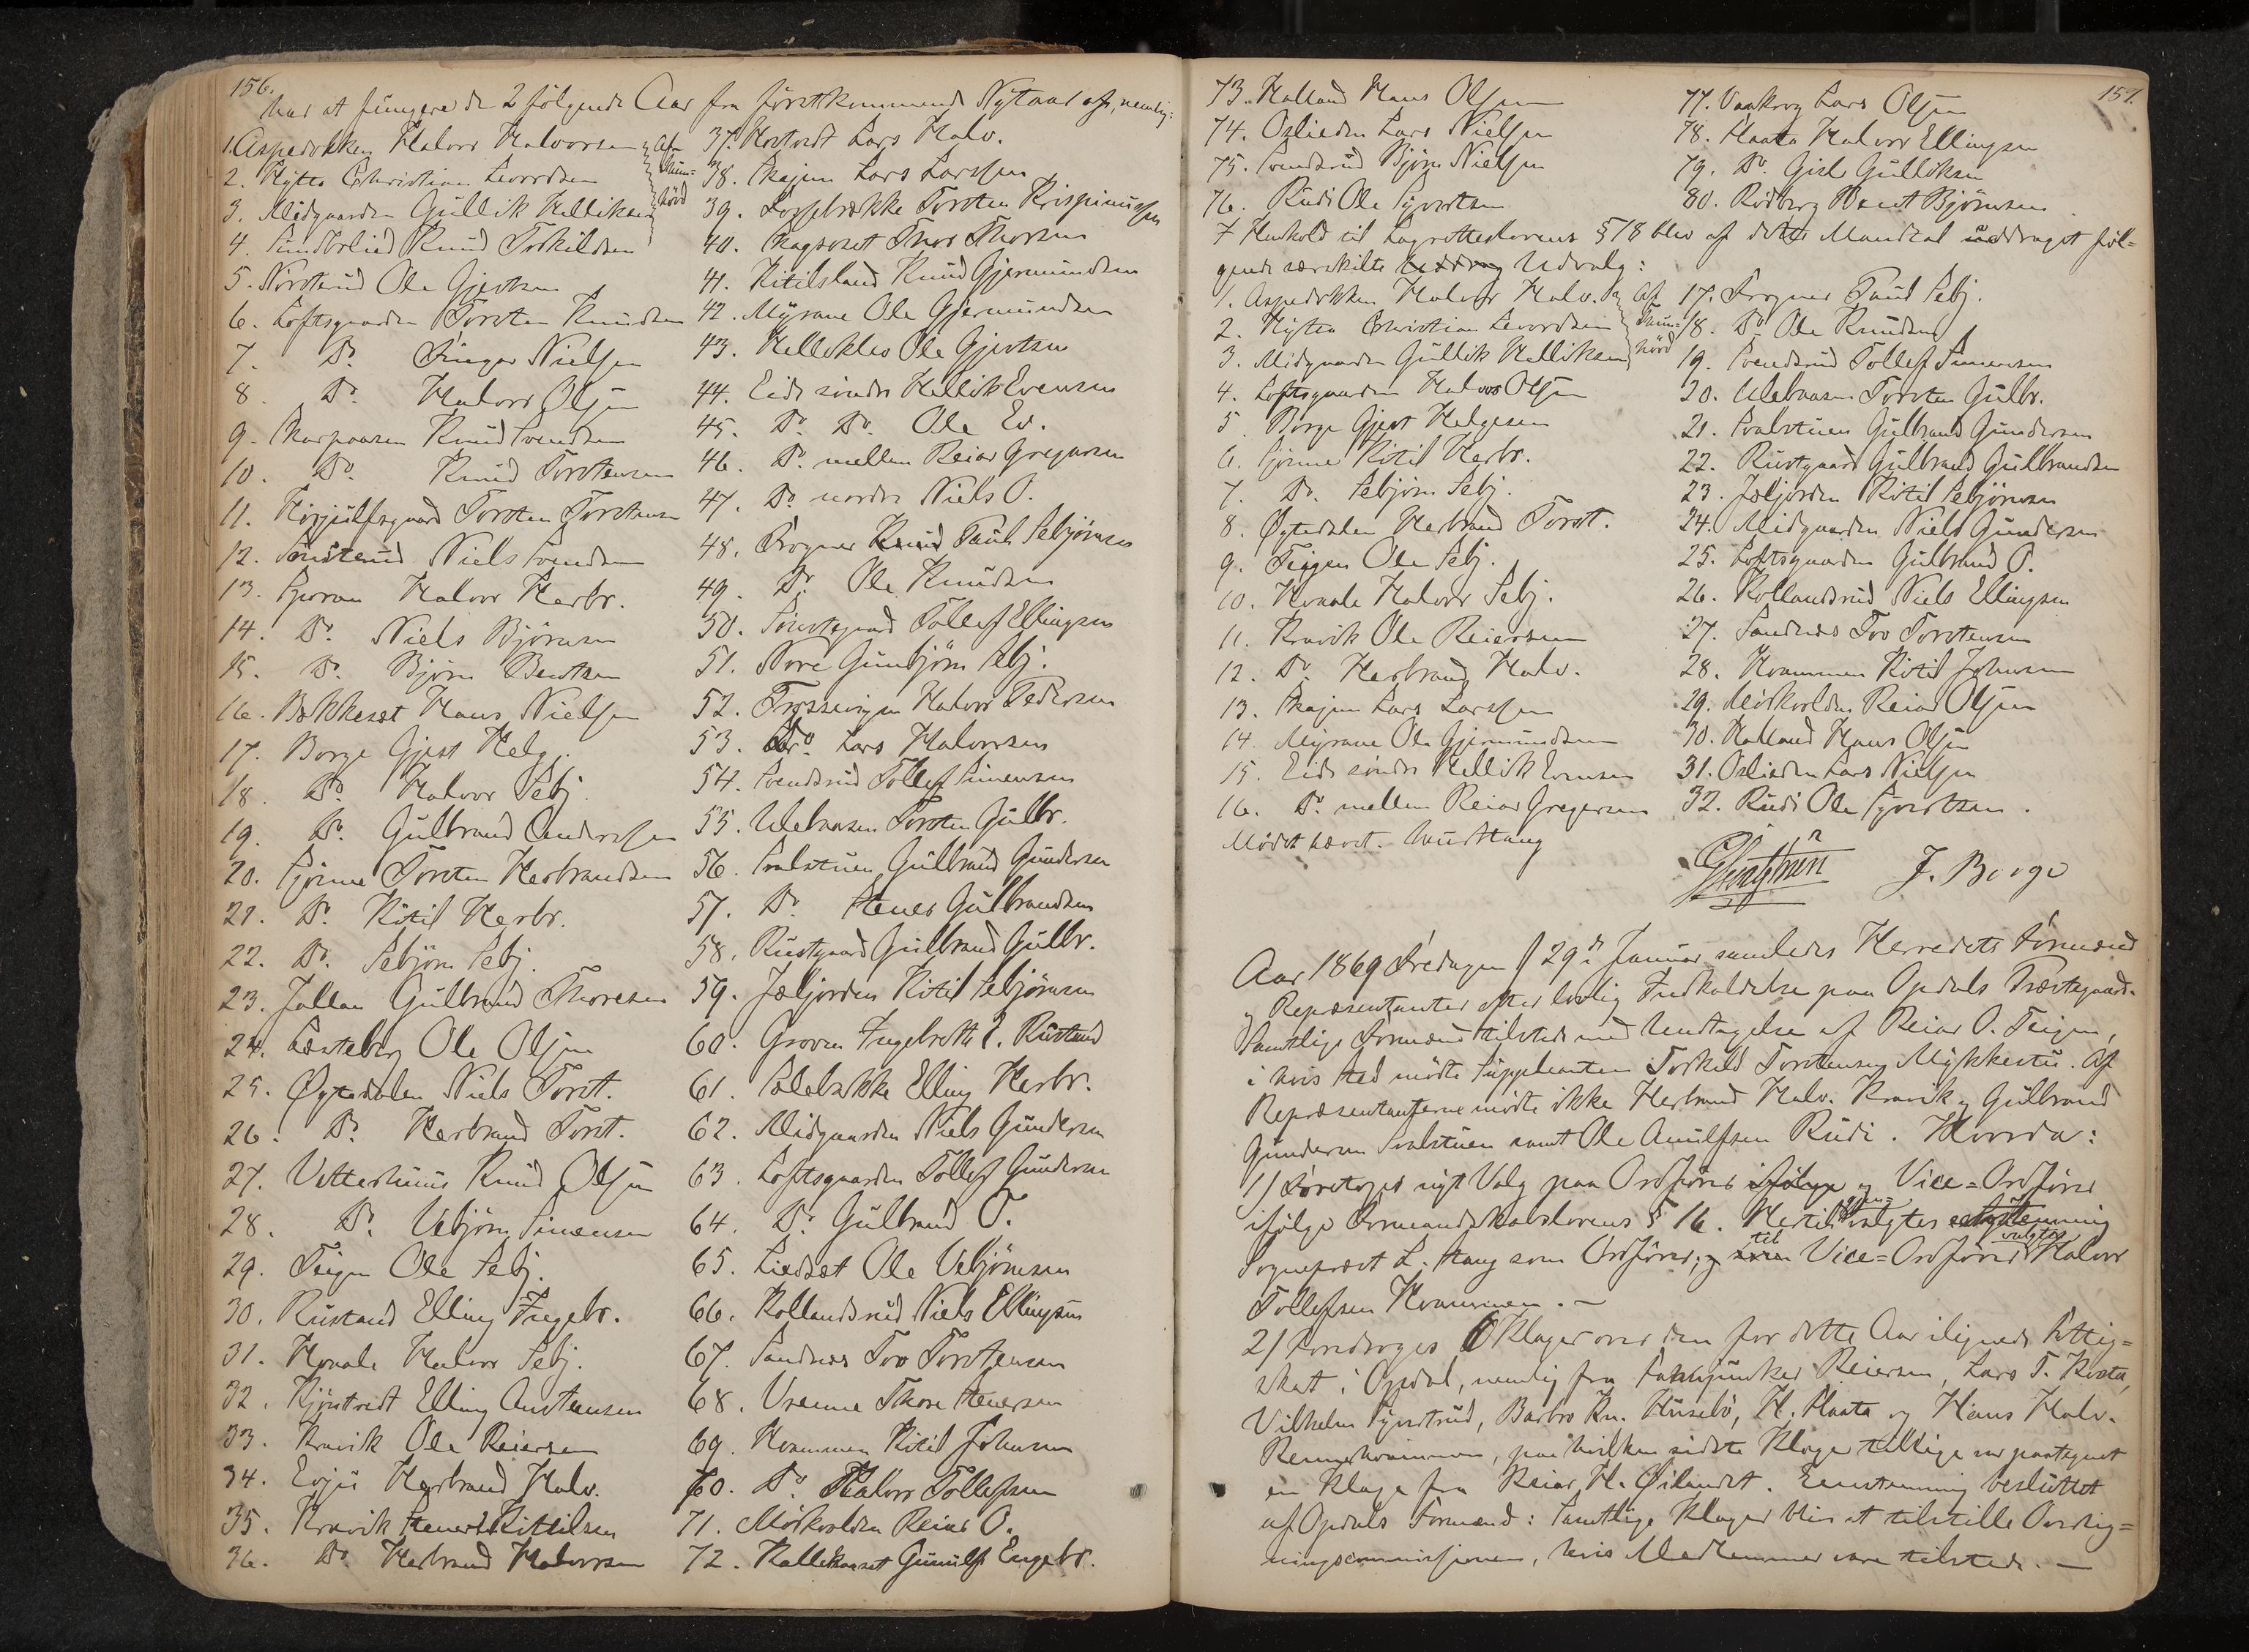 156.
har at fungere de 2 følgende Aar fra førstkommende Nytaar af, nemlig:
1. Aspedokken Halvor Halvorsen
2. Hytta Christian Levordsen
3. Midgaarden Gullik Helliksen
Af Thunhövd
4. Sundbølied Knud Torkildsen
5. Nörsterud Ole Gjestsen
6. Loftsgaarden Torsten Knudsen
7. Do. Finger Nielsen
8. Do. Halvor Olsen
9. Skarpaasen Knud Svendsen
10. Do. Knud Torstensen
11. Hörjulfsgaard Torsten Torstensen
12. Smisterud Niels Svendsen
13. Gjoran Halvor Herbr.
14. Do. Niels Björnsen
15. Do. Björn Bentsen
16. Bækkeset Hans Nielsen
17. Borge Gjest Helg.
18. Do. Halvor Sebj.
19. Do. Gulbrand Anderssen
20. Sjönne Torsten Herbrandsen
21. Do. Kitil Herbr.
22. Do. Sebjörn Sebj.
23. Jallan Gulbrand Thoresen
24. Lesteberg Ole Olsen
25. Øytedalen Niels Torst.
26. Do. Herbrand Torst.
27. Vetterhuus Knud Olsen
28. Do. Vebjörn Simensen
29. Teigen Ole Sebj.
30. Rustand Elling Ingebr.
31. Hvaale Halvor Sebj.
32. Kjöntvedt Elling Anstensen
33. Kravik Ole Reiersen
34. Evju Herbrand Halv.
35. Kravik Stener Kittilsen
36. Do. Herbrand Halvorsen
37. Hostvedt Lars Halv.
38. Skajem Lars Larssen
39. Loppebrække Torsten Krispinussen
40. Skagsoset Thor Thorsen
41. Kitilsland Knud Gjermundsen
42. Myrane Ole Gjermundsen
43. Helleklev Ole Gjestsen
44. Eide söndre Hellik Evensen
45. Do. Do. Ole Ev.
46. Do. mellem Reiar Gregersen
47. Do. nordre Niels O.
48. Frogner Knud Paul Sebjörnsen
49. Do. Ole Knudsen
50. Sönstegaard Tollef Ellingsen
51. Nore Gunbjörn Sebj.
52. Frössevigen Halvor Pedersen
53. Do. Lars Halvorsen
54. Svendsrud Tollef Simensen
55. Ulebaasen Torsten Gulbr.
56. Svalstuen Gulbrand Gundersen
57. Do. Stener Gulbrandsen
58. Rustgaard Gulbrand Gulbr.
59. Jæljorden Kitil Sebjörnsen
60. Groven Ingebrett E. Rustand
61. Sælebække Elling Herbr.
62. Midgaarden Niels Gundersen
63. Loftsgaarden Tollef Gundersen
64. Do. Gulbrand O.
65. Liedset Ole Vebjörnsen
66. Rollandsrud Niels Ellingsen
67. Sandnes Tov Torstensen
68. Vrenne Thore Stenersen
69. Hvammen Kitil Johnsen
70. Do. Halvor Tollefsen
71. Mörkvolden Reiar O.
72. Kallekaaset Gunulf Engebr.
157.
73. Halland Hans Olsen
74. Oslieden Lars Nielsen
75. Svendsrud Björn Nielsen
76. Rudi Ole Syvertsen
77. Vaakrog Lars Olsen
78. Haata Halvor Ellingsen
79. Do. Gisle Gulliksen
80. Rödberg Bent Björnsen
I Henhold til Lagrettelovens § 18 blev af dette Mandtal uddraget föl=
gende særskilte Uddrag Udvalg:
1. Aspedokken Halvor Halv.
2. Hytta Christian Levordsen
3. Midgaarden Gullik Helliksen
Af Thunhövd
4. Loftsgaarden Halvor Olsen
5. Borge Gjest Helgesen
6. Sjönne Kitil Herbr.
7. Do. Sebjörn Sebj.
8. Øytedalen Herbrand Torst.
9. Teigen Ole Sebj.
10. Hvaale Halvor Sebj.
11. Kravik Ole Reiersen
12. Do. Herbrand Halv.
13. Skajem Lars Larssen
14. Myrane Ole Gjermundsen
15. Eide söndre Hellik Evensen
16. Do. mellem Reiar Gregersen
17. Frogner Paul Sebj.
18. Do. Ole Knudsen
19. Svendsrud Tollef Simensen
20. Ulebaasen Torsten Gulbr.
21. Svalstuen Gulbrand Gundersen
22. Rustgaard Gulbrand Gulbrandsen
23. Jæljorden Kitil Sebjörnsen
24. Midgaarden Niels Gundersen
25. Loftsgaarden Gulbrand O.
26. Rollandsrud Niels Ellingsen
27. Sandnes Tov Torstensen
28. Hvammen Kitil Johnsen
29. Mörkvolden Reiar Olsen
30. Halland Hans Olsen
31. Oslieden Lars Nielsen
32. Rudi Ole Syvertsen.
Mödet hævet. Stang
J. Borge
Aar 1869 Fredagen d. 29de Januar samledes Herredets Formænd
og Repræsentanter efter lovlig Indkaldelse paa Opdals Præstegaard.
Samtlige Formænd tilstede med Undtagelse af Reiar O. Teigen,
i hvis Sted mödte Suppleanten Torkild Torstensen Mykkestu. Af
Repræsentanterne mödte ikke Herbrand Halv. Kravik og Gulbrand
Gundersen Svalstuen samt Ole Arnulfsen Rudi. Hvorda:
1) Foretoges nyt Valg paa Ordförer ifölge og Vice=Ordförer
ifölge Formandskabslovens § 16. Hertil gjen=valgtes eenstemmig
Sogneprest L. Stang som Ordförer; og til Vice=Ordförer valgtes Halvor
Tollefsen Hvammen.—
2) Foredroges 6 Klager over den for dette Aar ilignede Fattig=
skat i Opdal, nemlig fra Fanejunker Reiersen, Lars T. Kosta,
Vilhelm Synstrud, Barbro Kn. Husebö, H. Haata og Hans Halv.
Rennehvammen, paa hvilken sidste Klage tillige var paategnet
en Klage fra Reiar H. Øilandet. Eenstemmig besluttet
af Opdals Formænd: Samtlige Klager blive at tilstille Overlig=
ningscommissionen, hvis Medlemmer vare tilstede.—